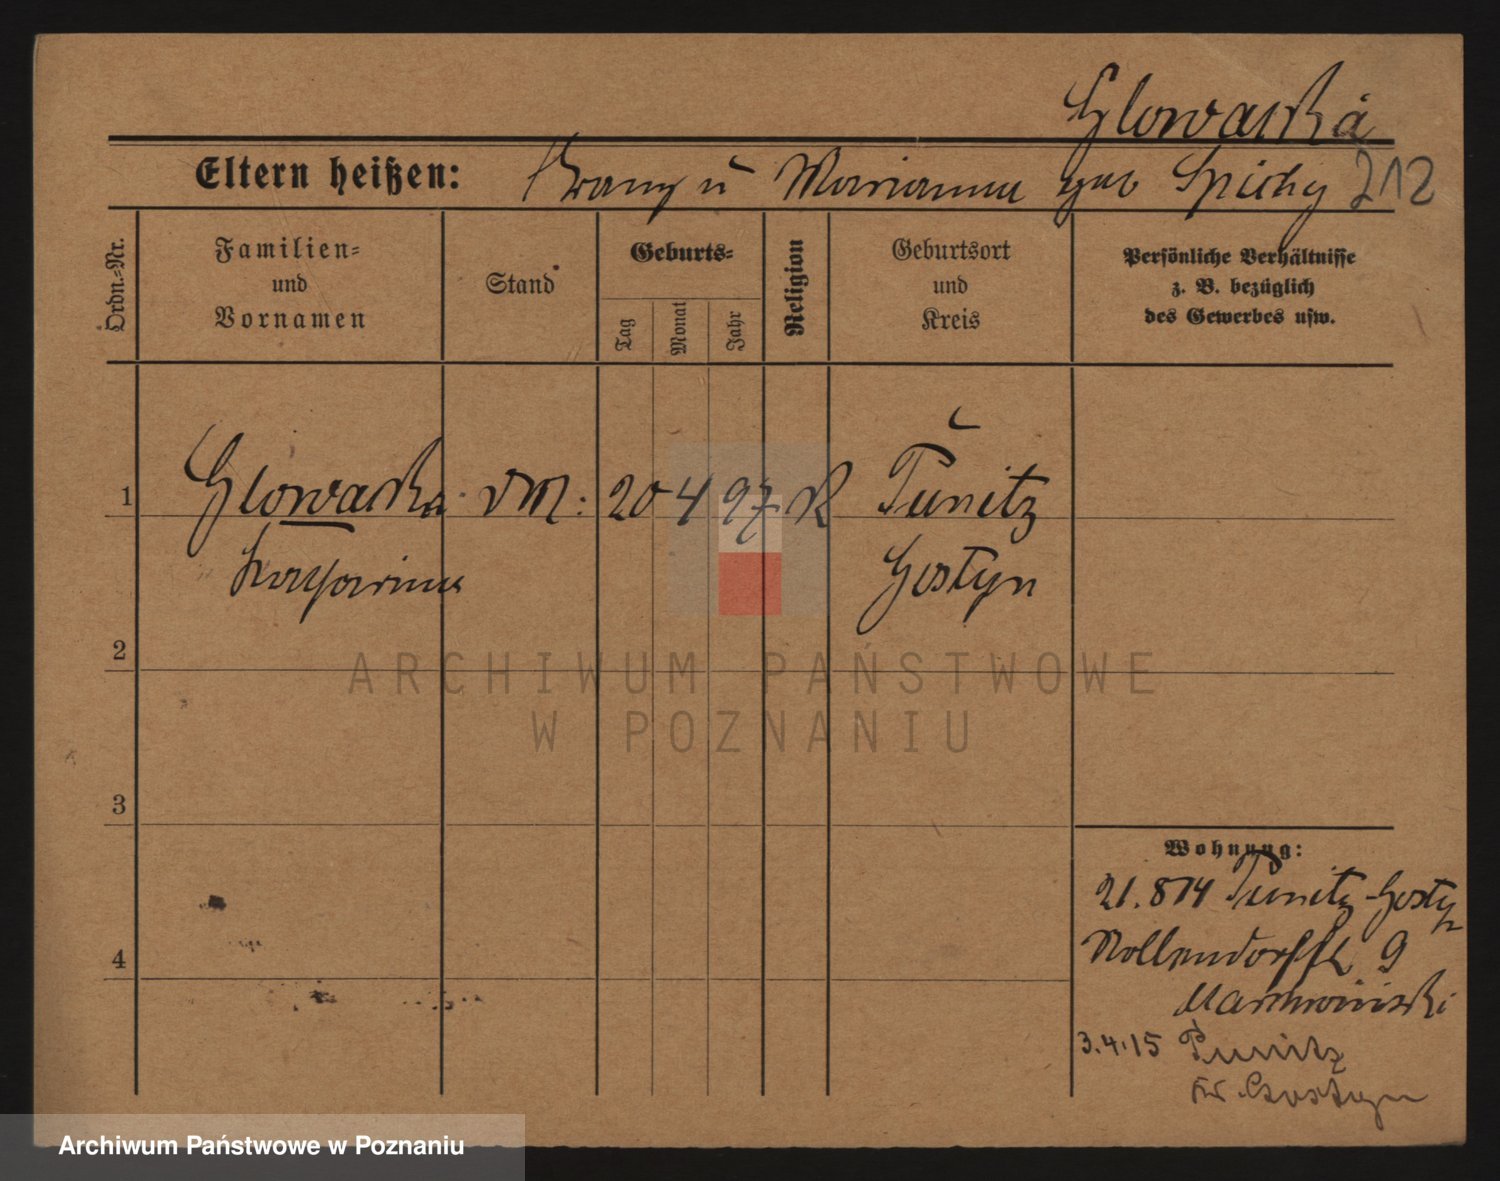 Glowacka
Eltern heißen: Franz u Marianna geb Spichy 212
Ordn.-Nr.
Familien-
und
Vornamen
Stand
Geburts-
Tag
Monat
Jahr
Religion
Geburtsort
und
Kreis
Persönliche Verhältnisse
z. B. bezüglich
des Gewerbes usw.
1 Glowacka DM: 20 4 97 K Punitz
Katharina Gostyn
2
3
4
Wohnung:
21.8 14 Punitz-Gostyn
Nollendorfstr 9
3.4.15 Punitz
Kr. Gostyn
ARCHIWUM PAŃSTWOWE
W POZNANIU
Archiwum Państwowe w Poznaniu